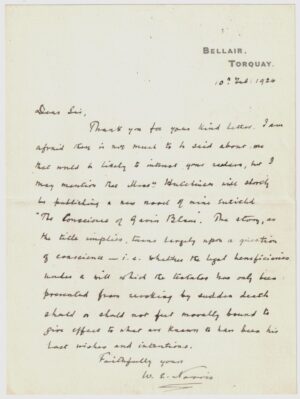 BELLAIR,
TORQUAY.
10th Feb: 1924
Dear Sir,
Thank you for your kind letter. I am
afraid there is not much to be said about me
that would be likely to interest your readers, but I
may mention that Messrs Hutchinson will shortly
be publishing a new novel of mine entitled
"The Conscience of Gavin Blane". The story, as
the title implies, turns largely upon a question
of conscience — i.e. whether the legal beneficiaries
under a will which the testator has only been
prevented from revoking by sudden death
should or should not feel morally bound to
give effect to what are known to have been his
last wishes and intentions.
Faithfully yours
W. E. Norris